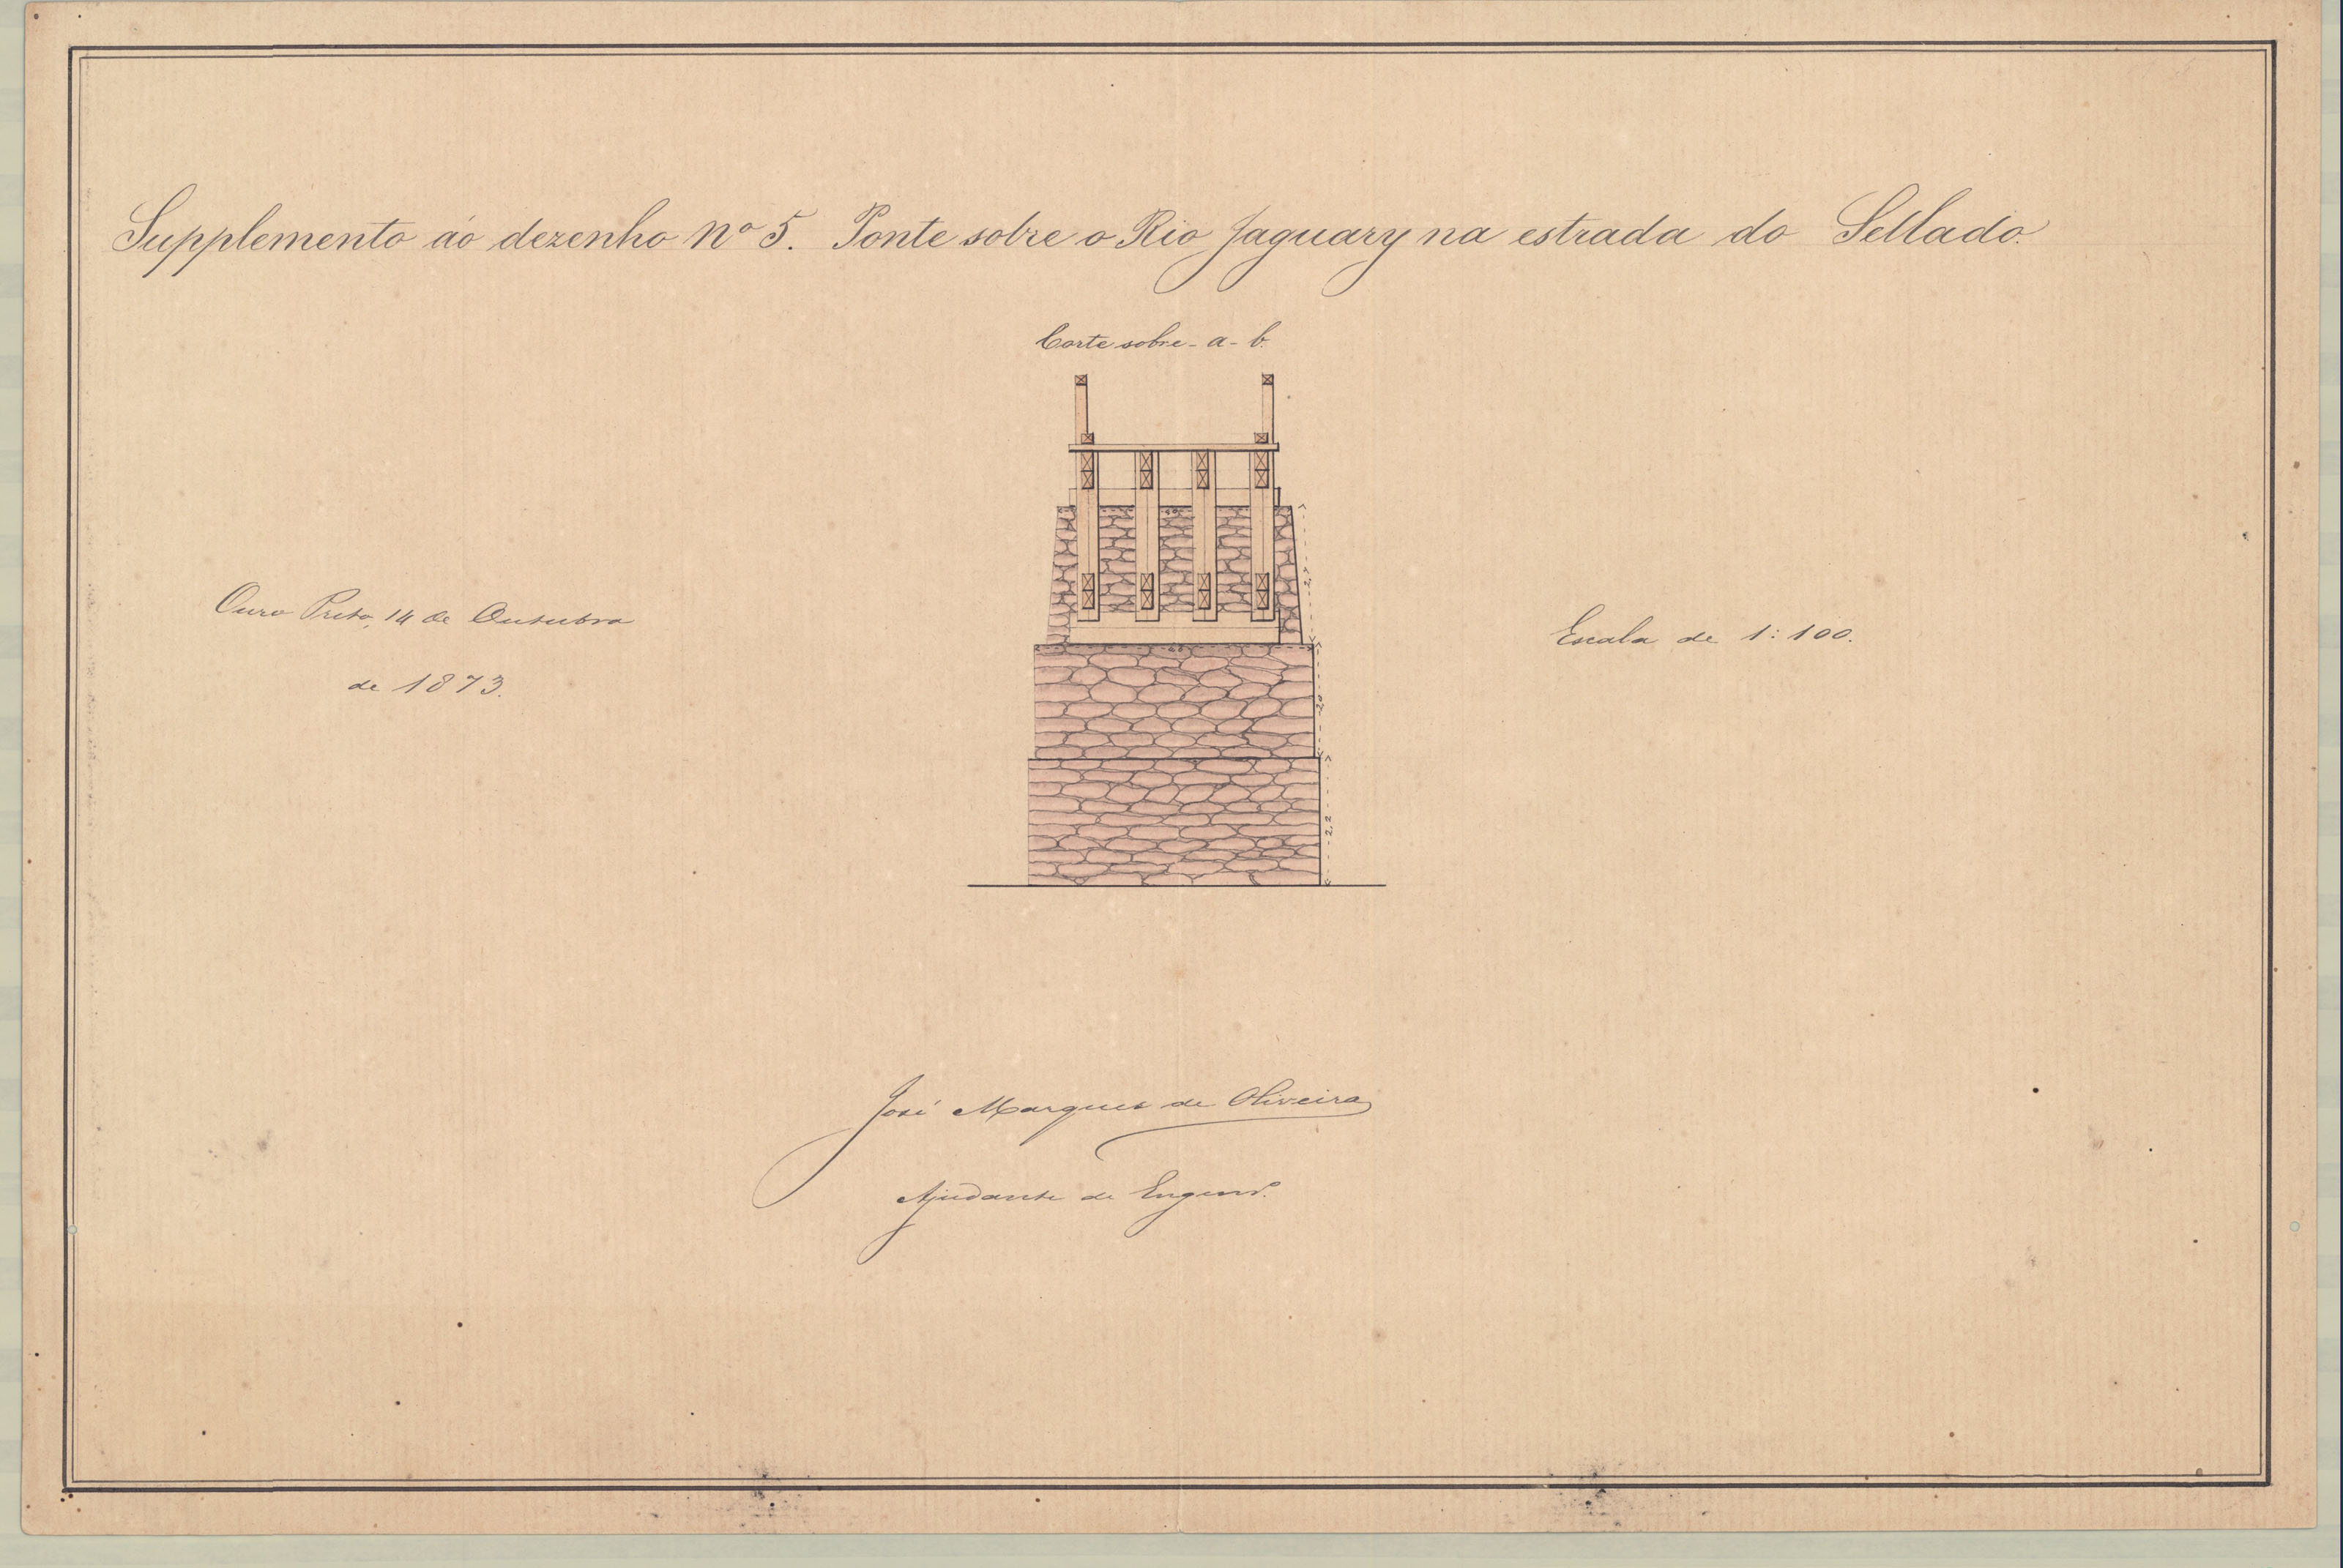 Supplemento áo dezenho Nº 5. Ponte sobre o Rio Jaguary na estrada do Sellado.
Corte sobre - a - b.
4,0
2,4
Ouro Preto, 14 de Outubro
de 1873.
Escala de 1:100.
4,8
2,0
2,2
José Marques de Oliveira
Ajudante de Engenrº.